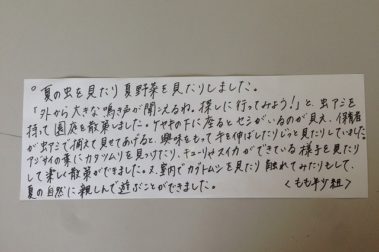 ○ 夏の虫を見たり夏野菜を見たりしました。
「外から大きな鳴き声が聞こえるね。探しに行ってみよう！」と、虫アミを
持って園庭を散策しました。ケヤキの下に座るとセミがいるのが見え、保育者
が虫アミで捕えて見せてあげると、興味をもって手を伸ばしたりじっと見たりしていました
アジサイの葉にカタツムリを見つけたり、キューリやスイカができている様子を見たり
して楽しく散策ができました。又、室内でカブトムシを見たり触れてみたりもして、
夏の自然に親しんで遊ぶことができました。 〈もも年少組〉